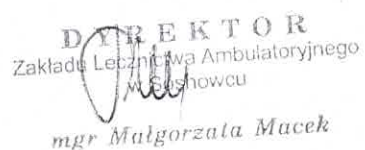 DYREKTOR
Zakładu Lecznictwa Ambulatoryjnego
w Sosnowcu
mgr Małgorzata Macek